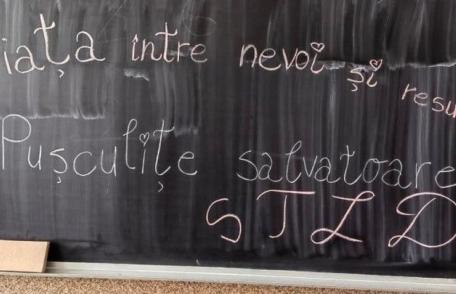 iața între nevoi și resu
Pușculițe salvatoare
STLD